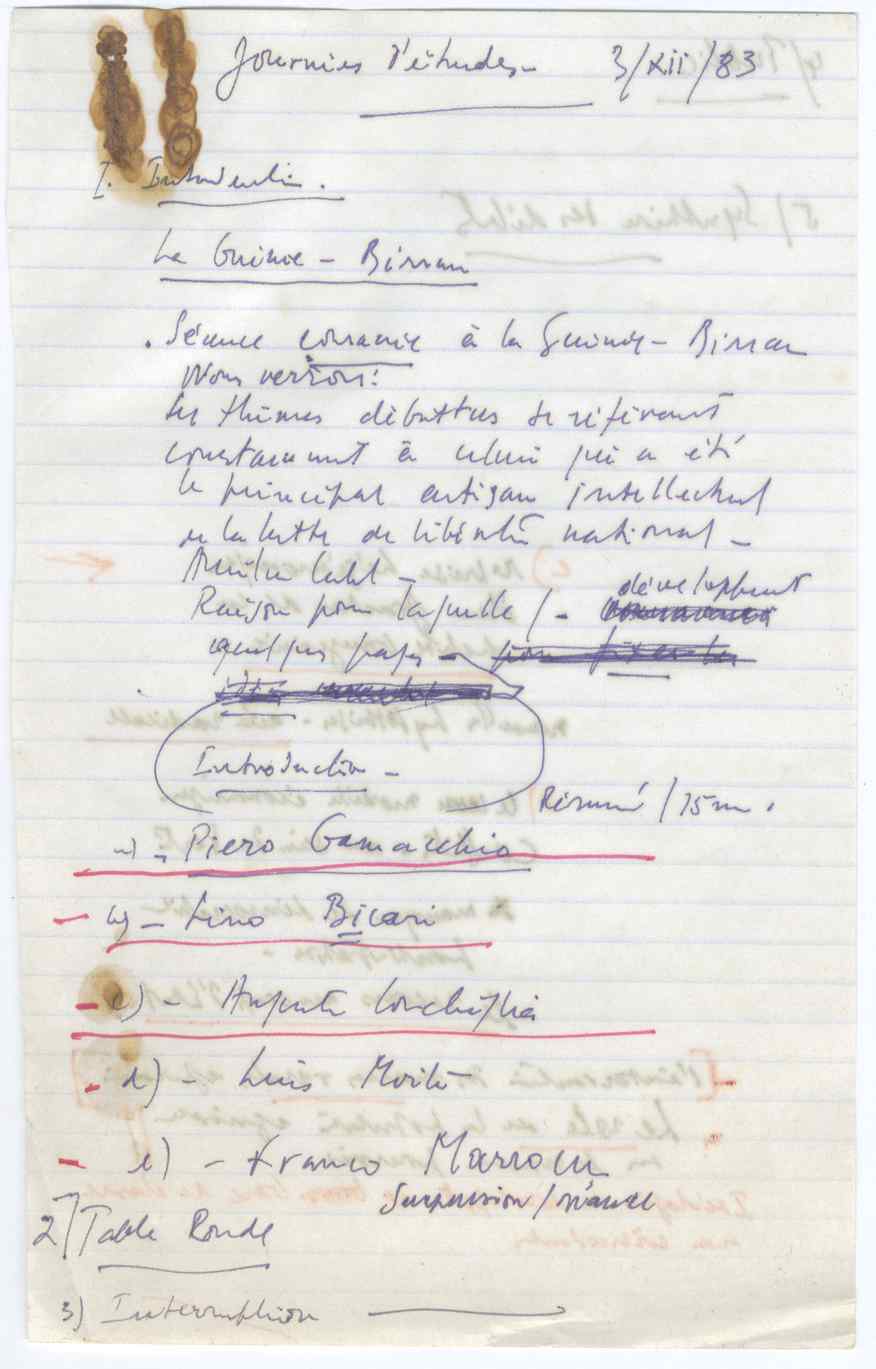 Journées d'études - 3/XII/83
I. Introduction.
La Guinée - Bissau
. Séance consacrée à la Guinée - Bissau
Nous verrons:
les thèmes débattus se référant
constamment à celui qui a été
le principal artisan intellectuel
de la lutte de libération national -
Amilcar Cabral -
Raison pour laquelle / - développent
quelques pages -
Introduction -
Résumé / 15m.
a) - Piero Gamacchio
b) - Lino Bicari
c) - Augusta Conchiglia
d) - Luis Moita
e) - Franco Marrocu
Suspension / séance
2) Table Ronde
3) Interruption
5) Synthèse des débats